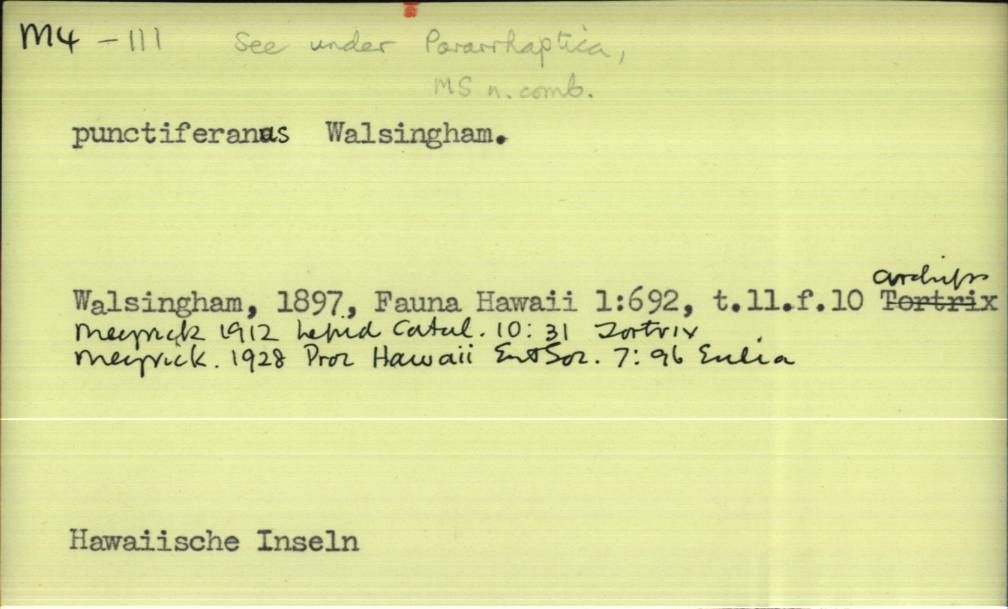 M4 - 111 See under Pararrhaptica,
MS n. comb.
punctiferanus Walsingham.
archips
Walsingham, 1897, Fauna Hawaii 1:692, t.11.f.10 Tortrix
Meyrick 1912 Lepid Catal. 10: 31 Tortrix
Meyrick. 1928 Proc Hawaii Ent Soc. 7: 96 Eulia
Hawaiische Inseln